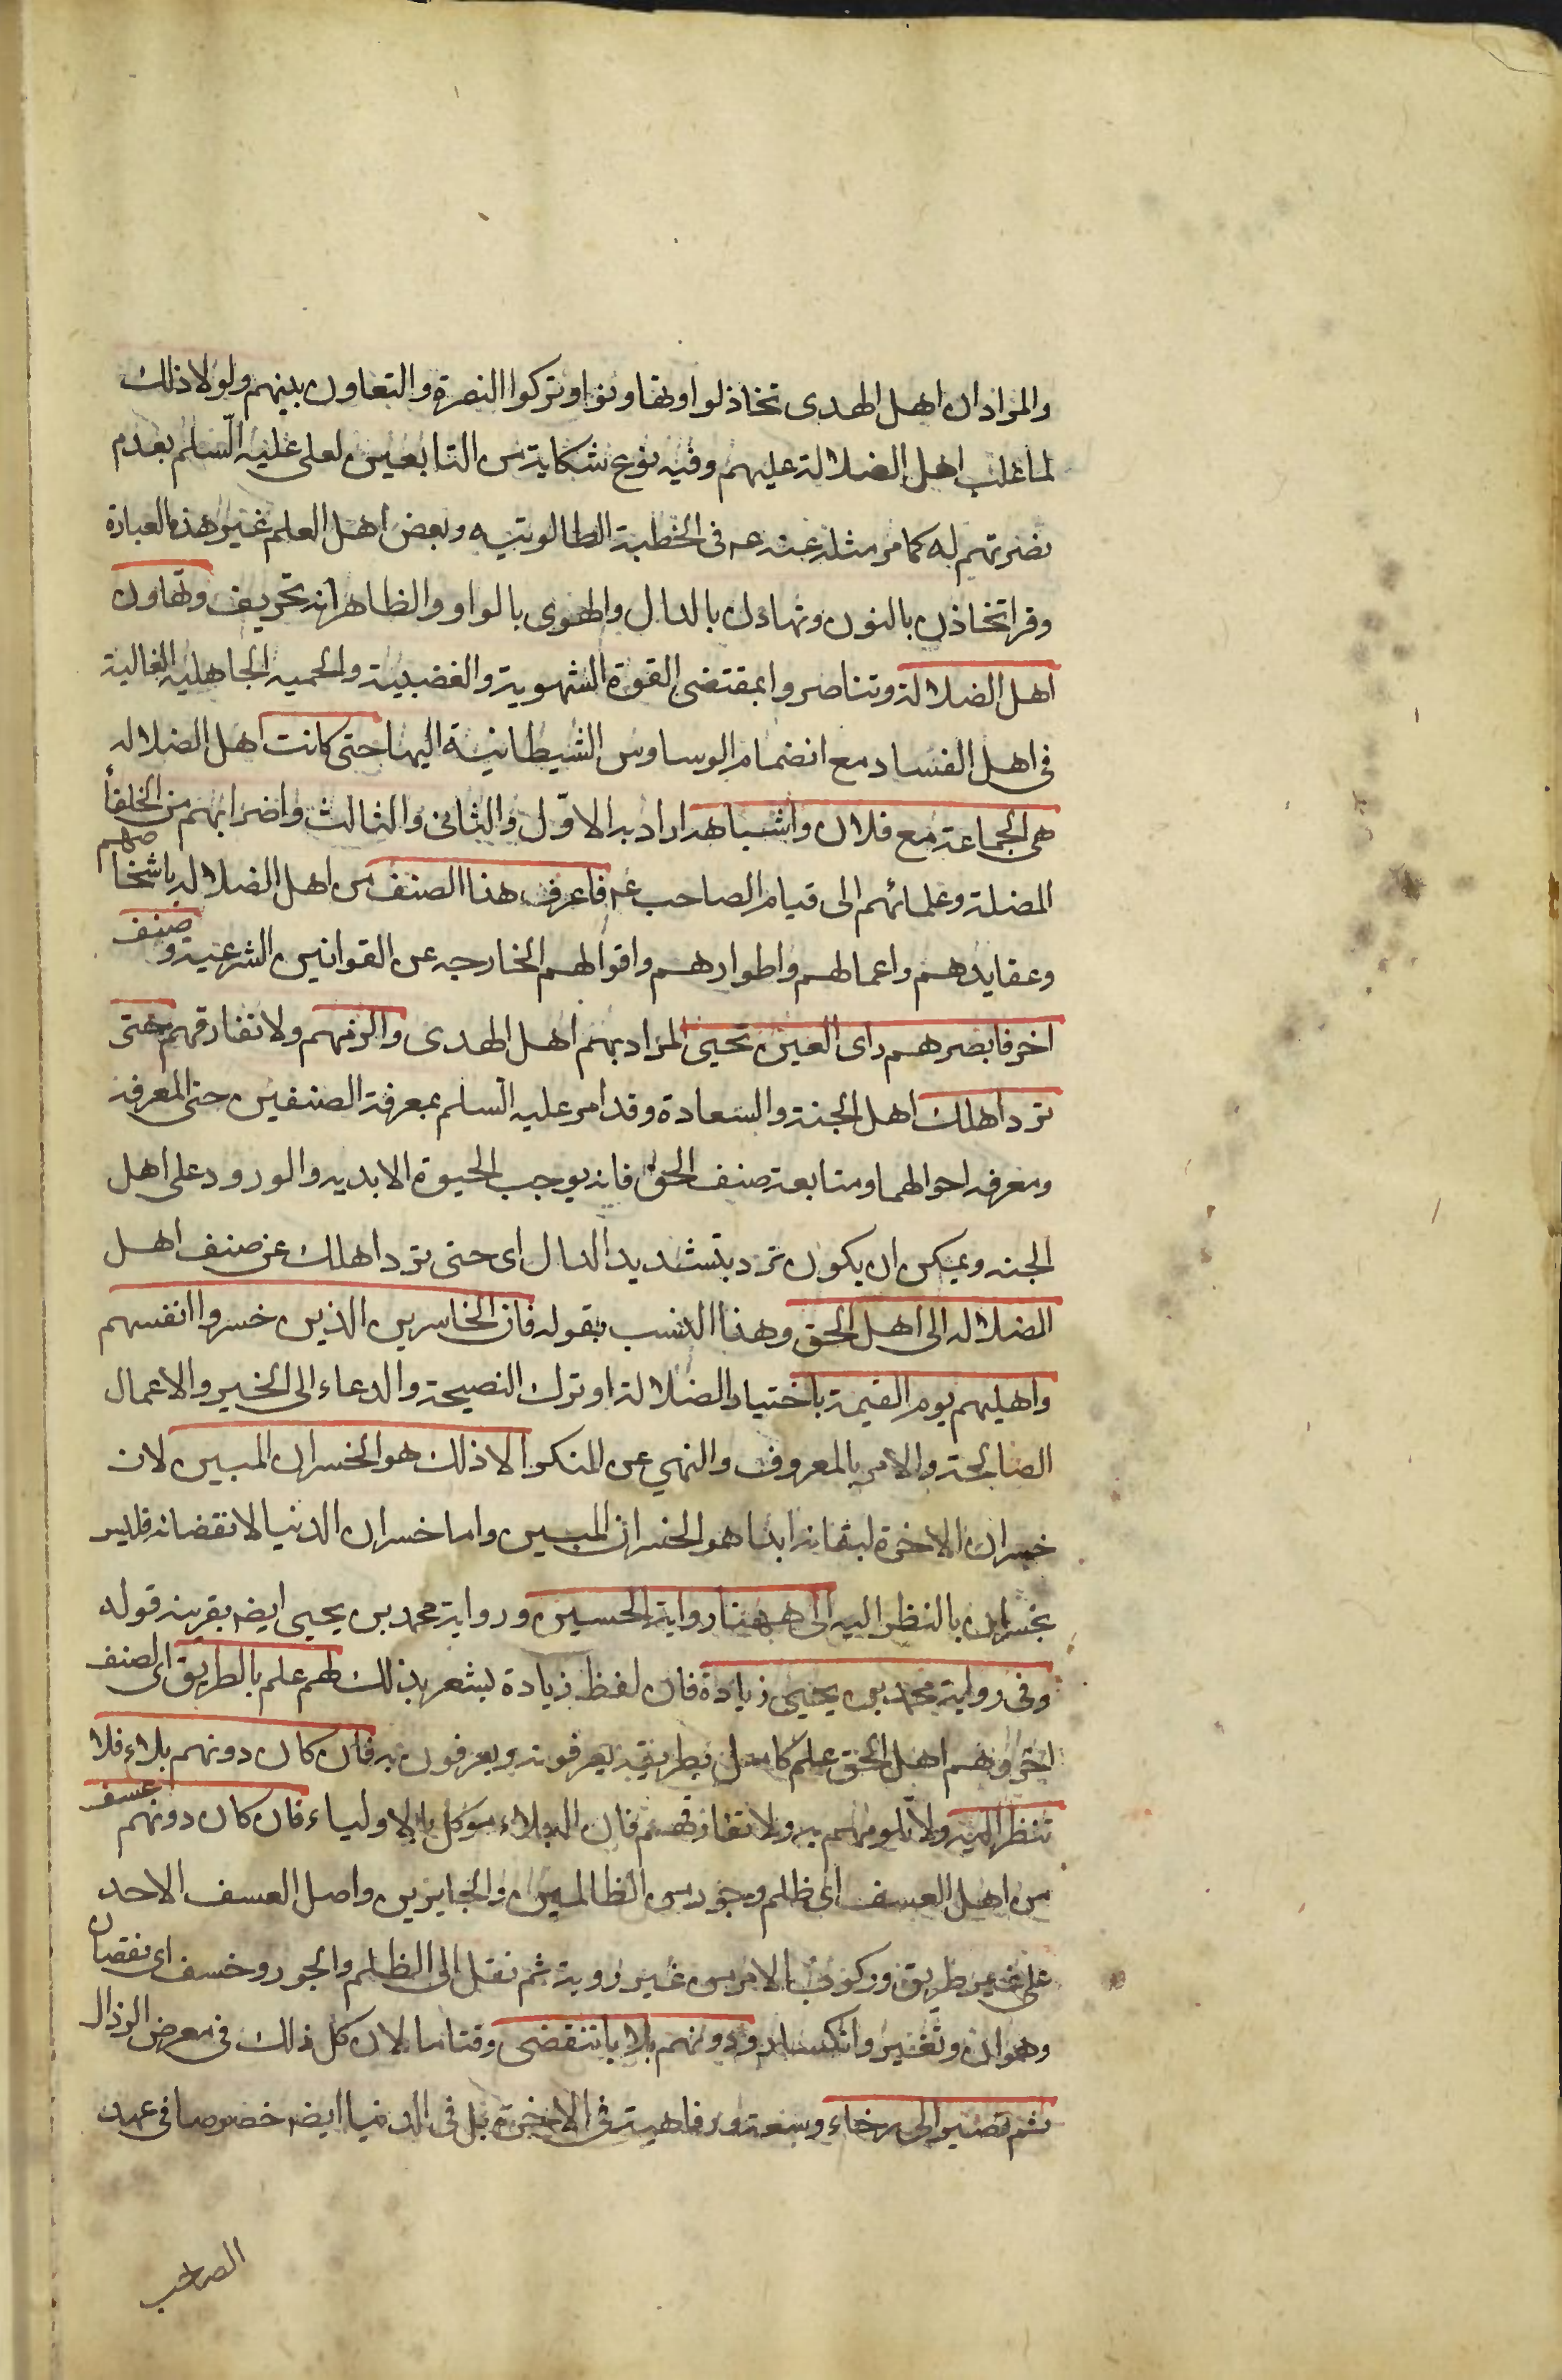 والمراد ان اهل الهدى تخاذلوا وتهاونوا وتركوا النصرة والتعاون بينهم ولولا ذلك
لما غلب اهل الضلالة عليهم وفيه نوع شكاية من التابعين لعلى عليه السلم بعدم
نصرتهم له كما مر مثله عنه ع‍ فى الخطبة الطالوتيه وبعض اهل العلم غير هذه العبارة
وقرا تخاذن بالنون وتهادن بالدال والهوى بالواو والظاهر انه تحريف وتهاون
اهل الضلالة وتناصروا بمقتضى القوة الشهوية والغضبية والحميه الجاهليه الغالبة
فى اهل الفساد مع انضمام الوساوس الشيطانية اليها حتى كانت اهل الضلاله
هى الجماعة مع فلان واشباهه اراد به الاوّل والثانى والثالث واضرابهم من الخلفأ
المضلة وعلمائهم الى قيام الصاحب ع‍ فاعرف هذا الصنف من اهل الضلاله باشخاصهم
وعقايدهم واعمالهم واطوارهم واقوالهم الخارجه عن القوانين الشرعية وصنف
اخر فابصرهم راى العين تحيى المراد بهم اهل الهدى والزمهم ولا تفارقهم حتى
ترد اهلك اهل الجنة والسعادة وقد امر عليه السلم بمعرفة الصنفين حق المعرفه
ومعرفه احوالهما ومتابعة صنف الحق فانه يوجب الحيوة الابديه والورود على اهل
الجنه ويمكن ان يكون ترد بتشديد الدال اى حتى ترد اهلك عن صنف اهل
الضلاله الى اهل الحق وهذا انسب بقوله فان الخاسرين الذين خسروا انفسهم
واهليهم يوم القيمة باختيار الضلالة او ترك النصيحة والدعاء الى الخير والاعمال
الصالحة والامر بالمعروف والنهي عن المنكر الا ذلك هو الخسران المبين لان
خسران الاخرة لبقائه ابدا هو الخسران المبين واما خسران الدنيا لانقضائه فليس
بخسران بالنظر اليه الى ههنا رواية الحسين ورواية محمد بن يحيى ايضه بقرينه قوله
وفى رواية محمد بن يحيى زيادة فان لفظ زيادة يشعر بذلك لهم علم بالطريق اى لصنف
اخر وهم اهل الحق علم كامل بطريقه يعرفونه ويعرفون به فان كان دونهم بلاء فلا
تنظر اليه ولا تلومهم به ولا تفارقهم فان البلاء موكل بالاولياء فان كان دونهم عسف
من اهل العسف اى ظلم وجور من الظالمين والجايرين واصل العسف الاخذ
على غير طريق وركوب الامر من غير روية ثم نقل الى الظلم والجور وخسف اى نقصان
وهوان وتغير وانكسار ودونهم بلايا تنقضى وقتا ما لان كل ذلك فى معرض الزوال
ثم تصير الى رخاء وسعة ورفاهية فى الاخرة بل فى الدنيا ايضه خصوصا فى عهد
الصاحب